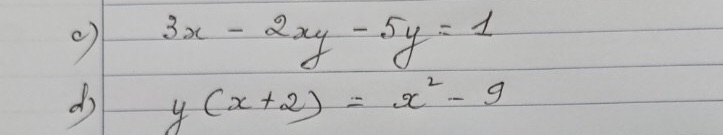 c) 3x - 2xy - 5y = 1
d) y (x+2) = x² - 9